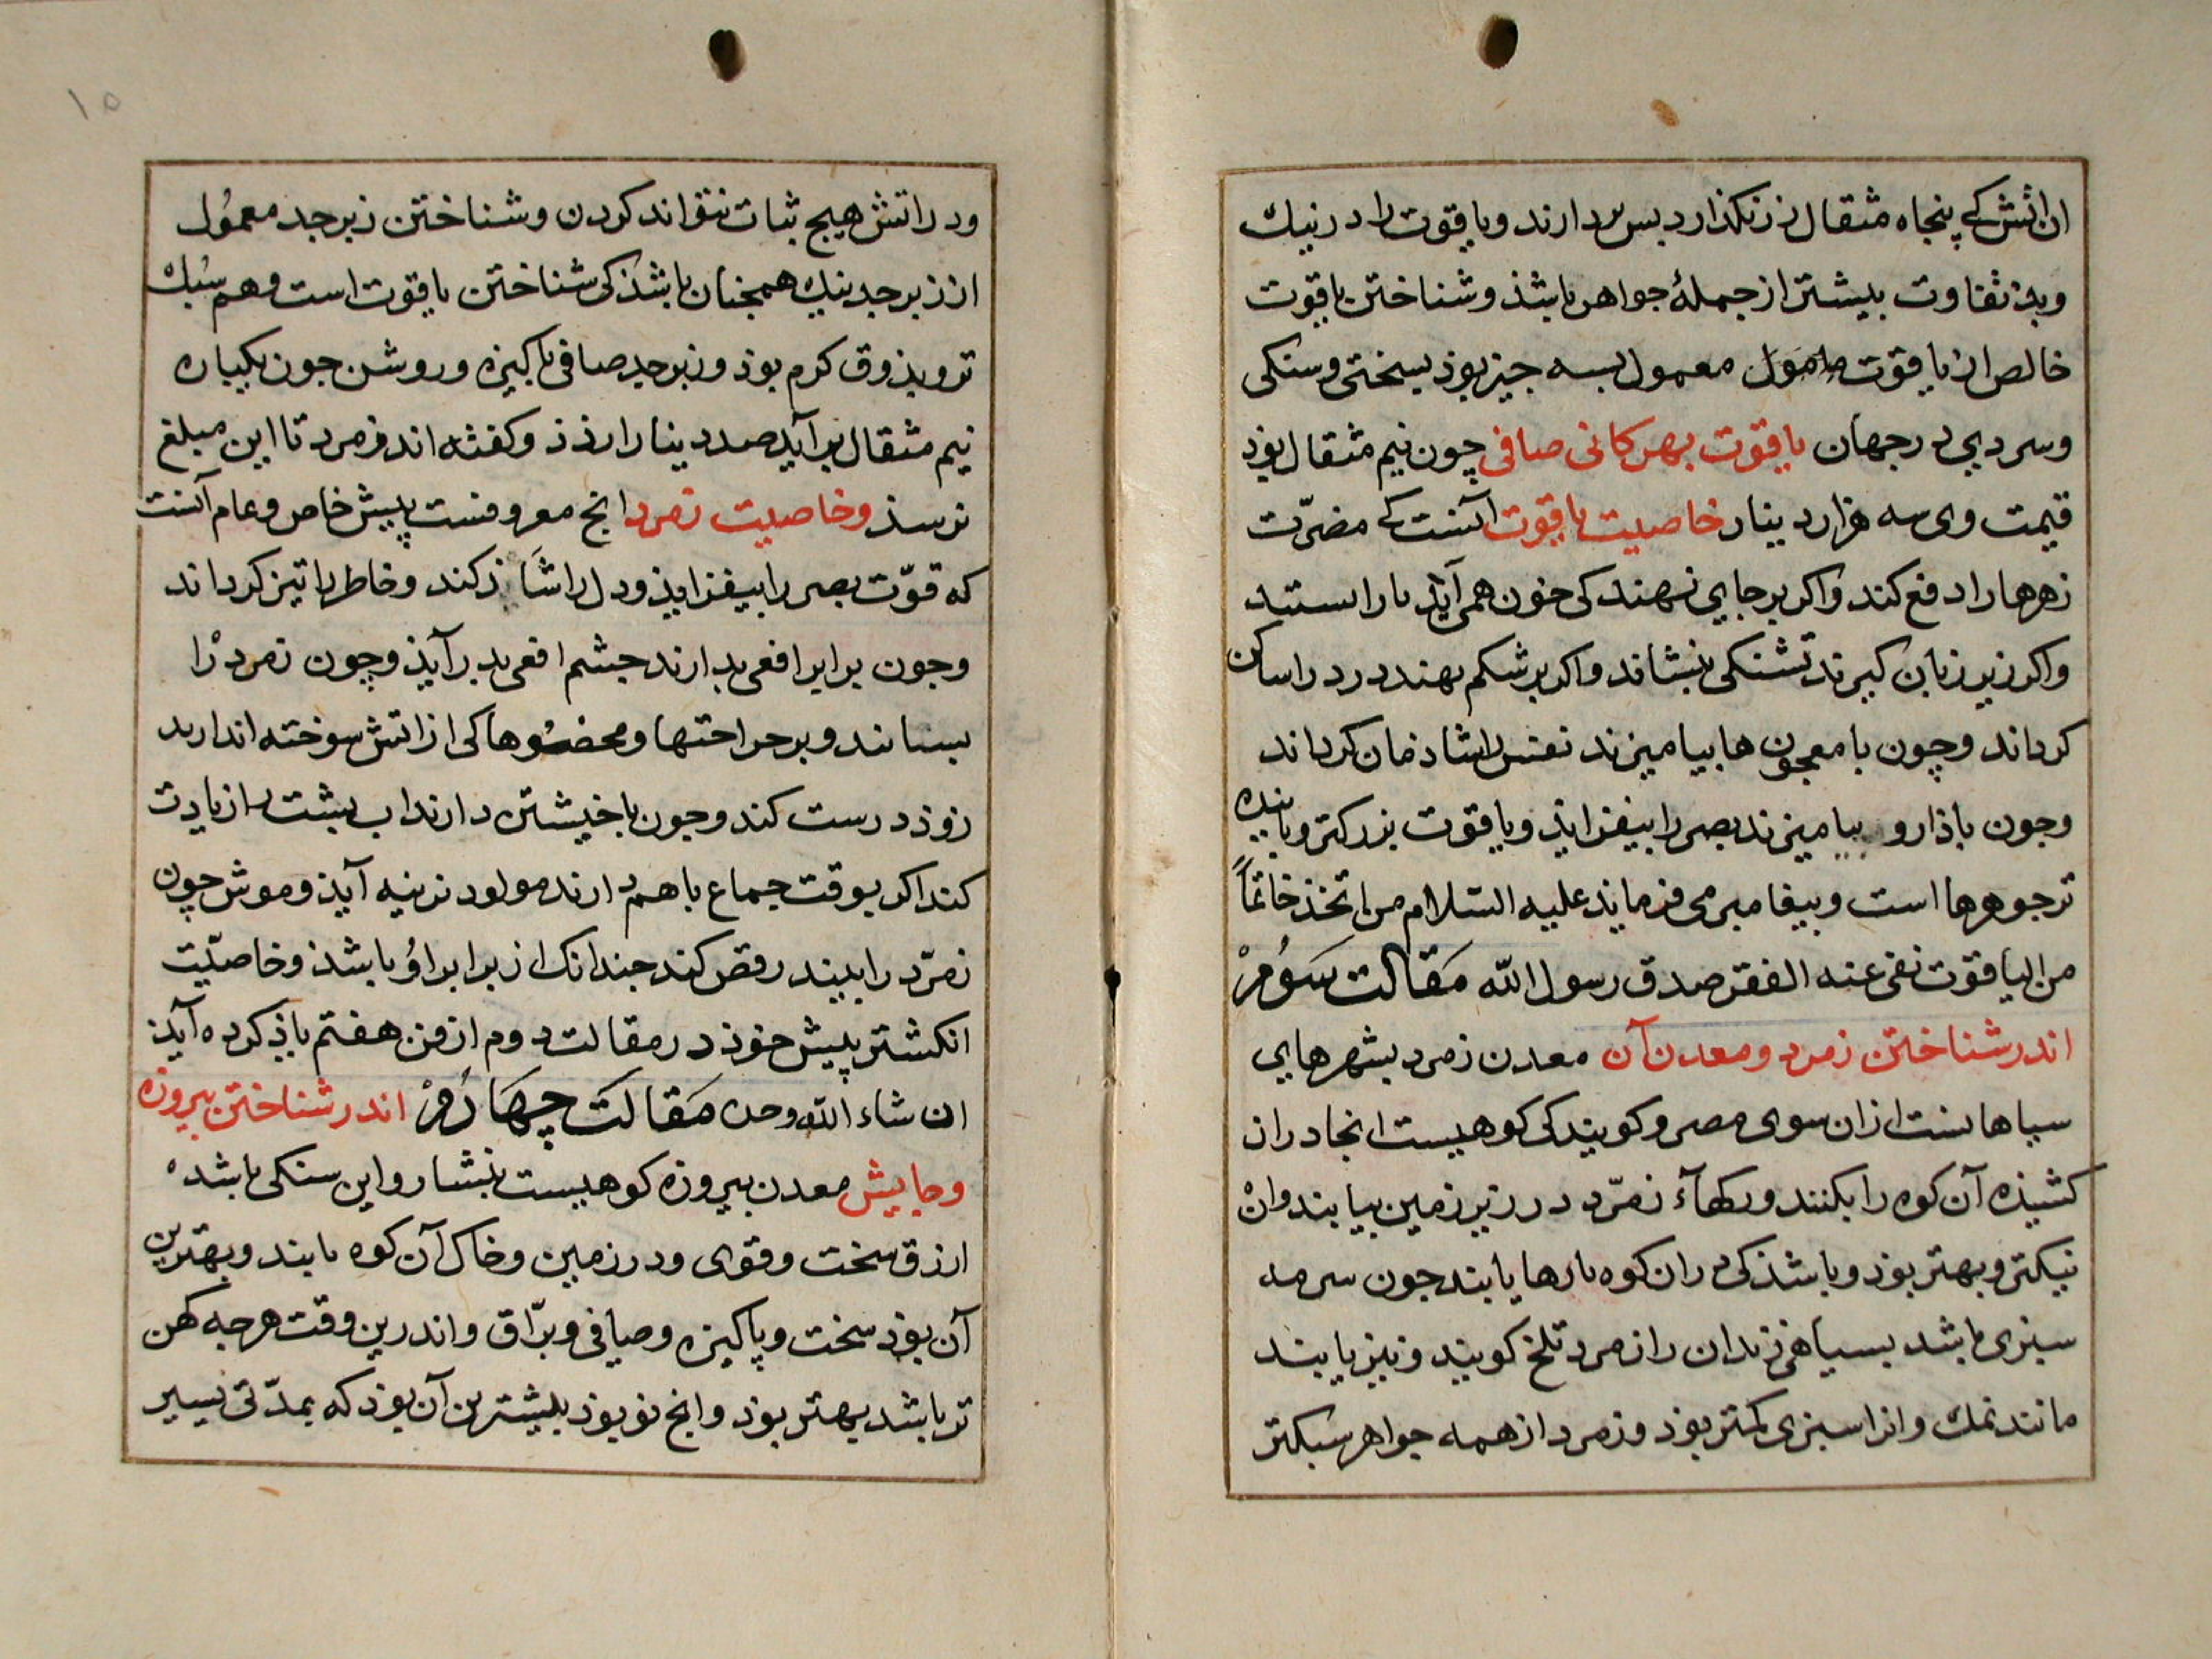 ان اتش که پنجاه مثقال زر نکذارد بس بردارند ویاقوت را در نیك
وبد تفاوت بیشتر از جملهٔ جواهر باشذ وشناختن یاقوت
خالص از یاقوت معمول بسه جیز بوذ بسختی وسنکی
وسردی در جهان یاقوت بهرکانی صافی چون نیم مثقال بوذ
قیمت وی سه هزار دینار خاصیت یاقوت آنست که مضرّت
زهرها را دفع کند واکر بر جایی نهند کی خون همی آیذ بازاستد
واکر زیر زبان کیرند تشنکی بنشاند واکر بر شکم بهند درد را ساکن
کرداند وچون با معجون ها بیامیزند نفس را شاذمان کرداند
وجون باذارو بیامیزند بصر را بیفزایذ ویاقوت بزرکتر وپاینده
تر جوهرها است وبیغامبر می فرمایذ علیه السّلام من اتخذ خاتماً
من الیاقوت نفی عنه الفقر صدق رسول الله مَقالت سَوُمْ
اندر شناختن زمرد ومعدن آن معدن زمرد بشهرهایی
سیاهانست ازان سوی مصر وکویند کی کوهیست انجا دراز
کشیذه آن کوه را بکنند ورکهآء زمرّد در زیر زمین بیابند وان
نیکتر وبهتر بوذ وباشذ کی دران کوه بارها یابند جون سرمه
سبزی باشد بسیاهی زند ان را زمرد تلخ کویند ونیز یابند
مانند نمك وانرا سبزی کمتر بوذ وزمرد از همه جواهر سبکتر
۱۵
ودر اتش هیچ ثبات نتواند کردن وشناختن زبرجد معمُول
از زبرجد نیك همچنان باشذ کی شناختن یاقوت است وهم سُبك
تر وبذوق کرم بوذ وزبرجد صافی پاکیزه وروشن جون یکپاره
نیم مثقال برآید صد دینار ارزذ وکفته اند زمرد تا این مبلغ
نرسذ وخاصیت زمرد انج معروفست پیش خاص وعام آنست
که قوّت بصر را بیفزایذ ودل را شاذ کند وخاطر را تیز کرداند
وجون برابر افعی بدارند جشم افعی بدرآیذ وچون زمرد را
بسایند وبر جراحتها وعضُوها کی از اتش سوخته اندارند
زوذ درست کند وجون باخیشتن دارند اب بشت را زیادت
کند اکر بوقت جماع باهم دارند مولود نرینه آیذ وموش چون
زمرّد را بیند رقص کند جندانك از برابر اوُ باشذ وخاصیّت
انکشتر پیش خوذ در مقالت دوم از فن هفتم یاذ کرده آیذ
ان شاء الله وحده مَقالتَ چهَارُمْ اندر شناختن بیروزه
وجایش معدن بیروزه کوهیست بنشار واین سنکی باشد
ازرق سخت وقوی ودر زمین وخاك آن کوه یابند وبهترین
آن بوذ سخت وپاکیزه وصافی وبرّاق واندرین وقت هرجه کهن
تر باشد بهتر بوذ وانج نو بوذ بیشترین آن بوذ که بمدّتی یسیر